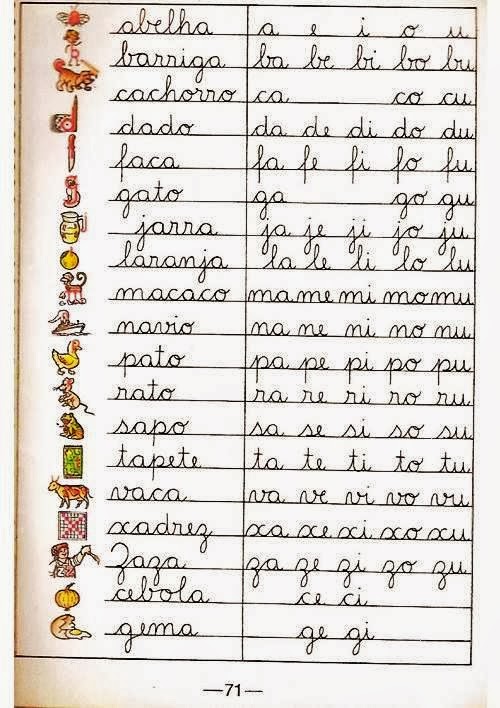 abelha a e i o u
barriga ba be bi bo bu
cachorro ca co cu
dado da de di do du
faca fa fe fi fo fu
gato ga go gu
jarra ja je ji jo ju
laranja la le li lo lu
macaco ma me mi mo mu
navio na ne ni no nu
pato pa pe pi po pu
rato ra re ri ro ru
sapo sa se si so su
tapete ta te ti to tu
vaca va ve vi vo vu
xadrez xa xe xi xo xu
Zaza za ze zi zo zu
cebola ce ci
gema ge gi
—71—